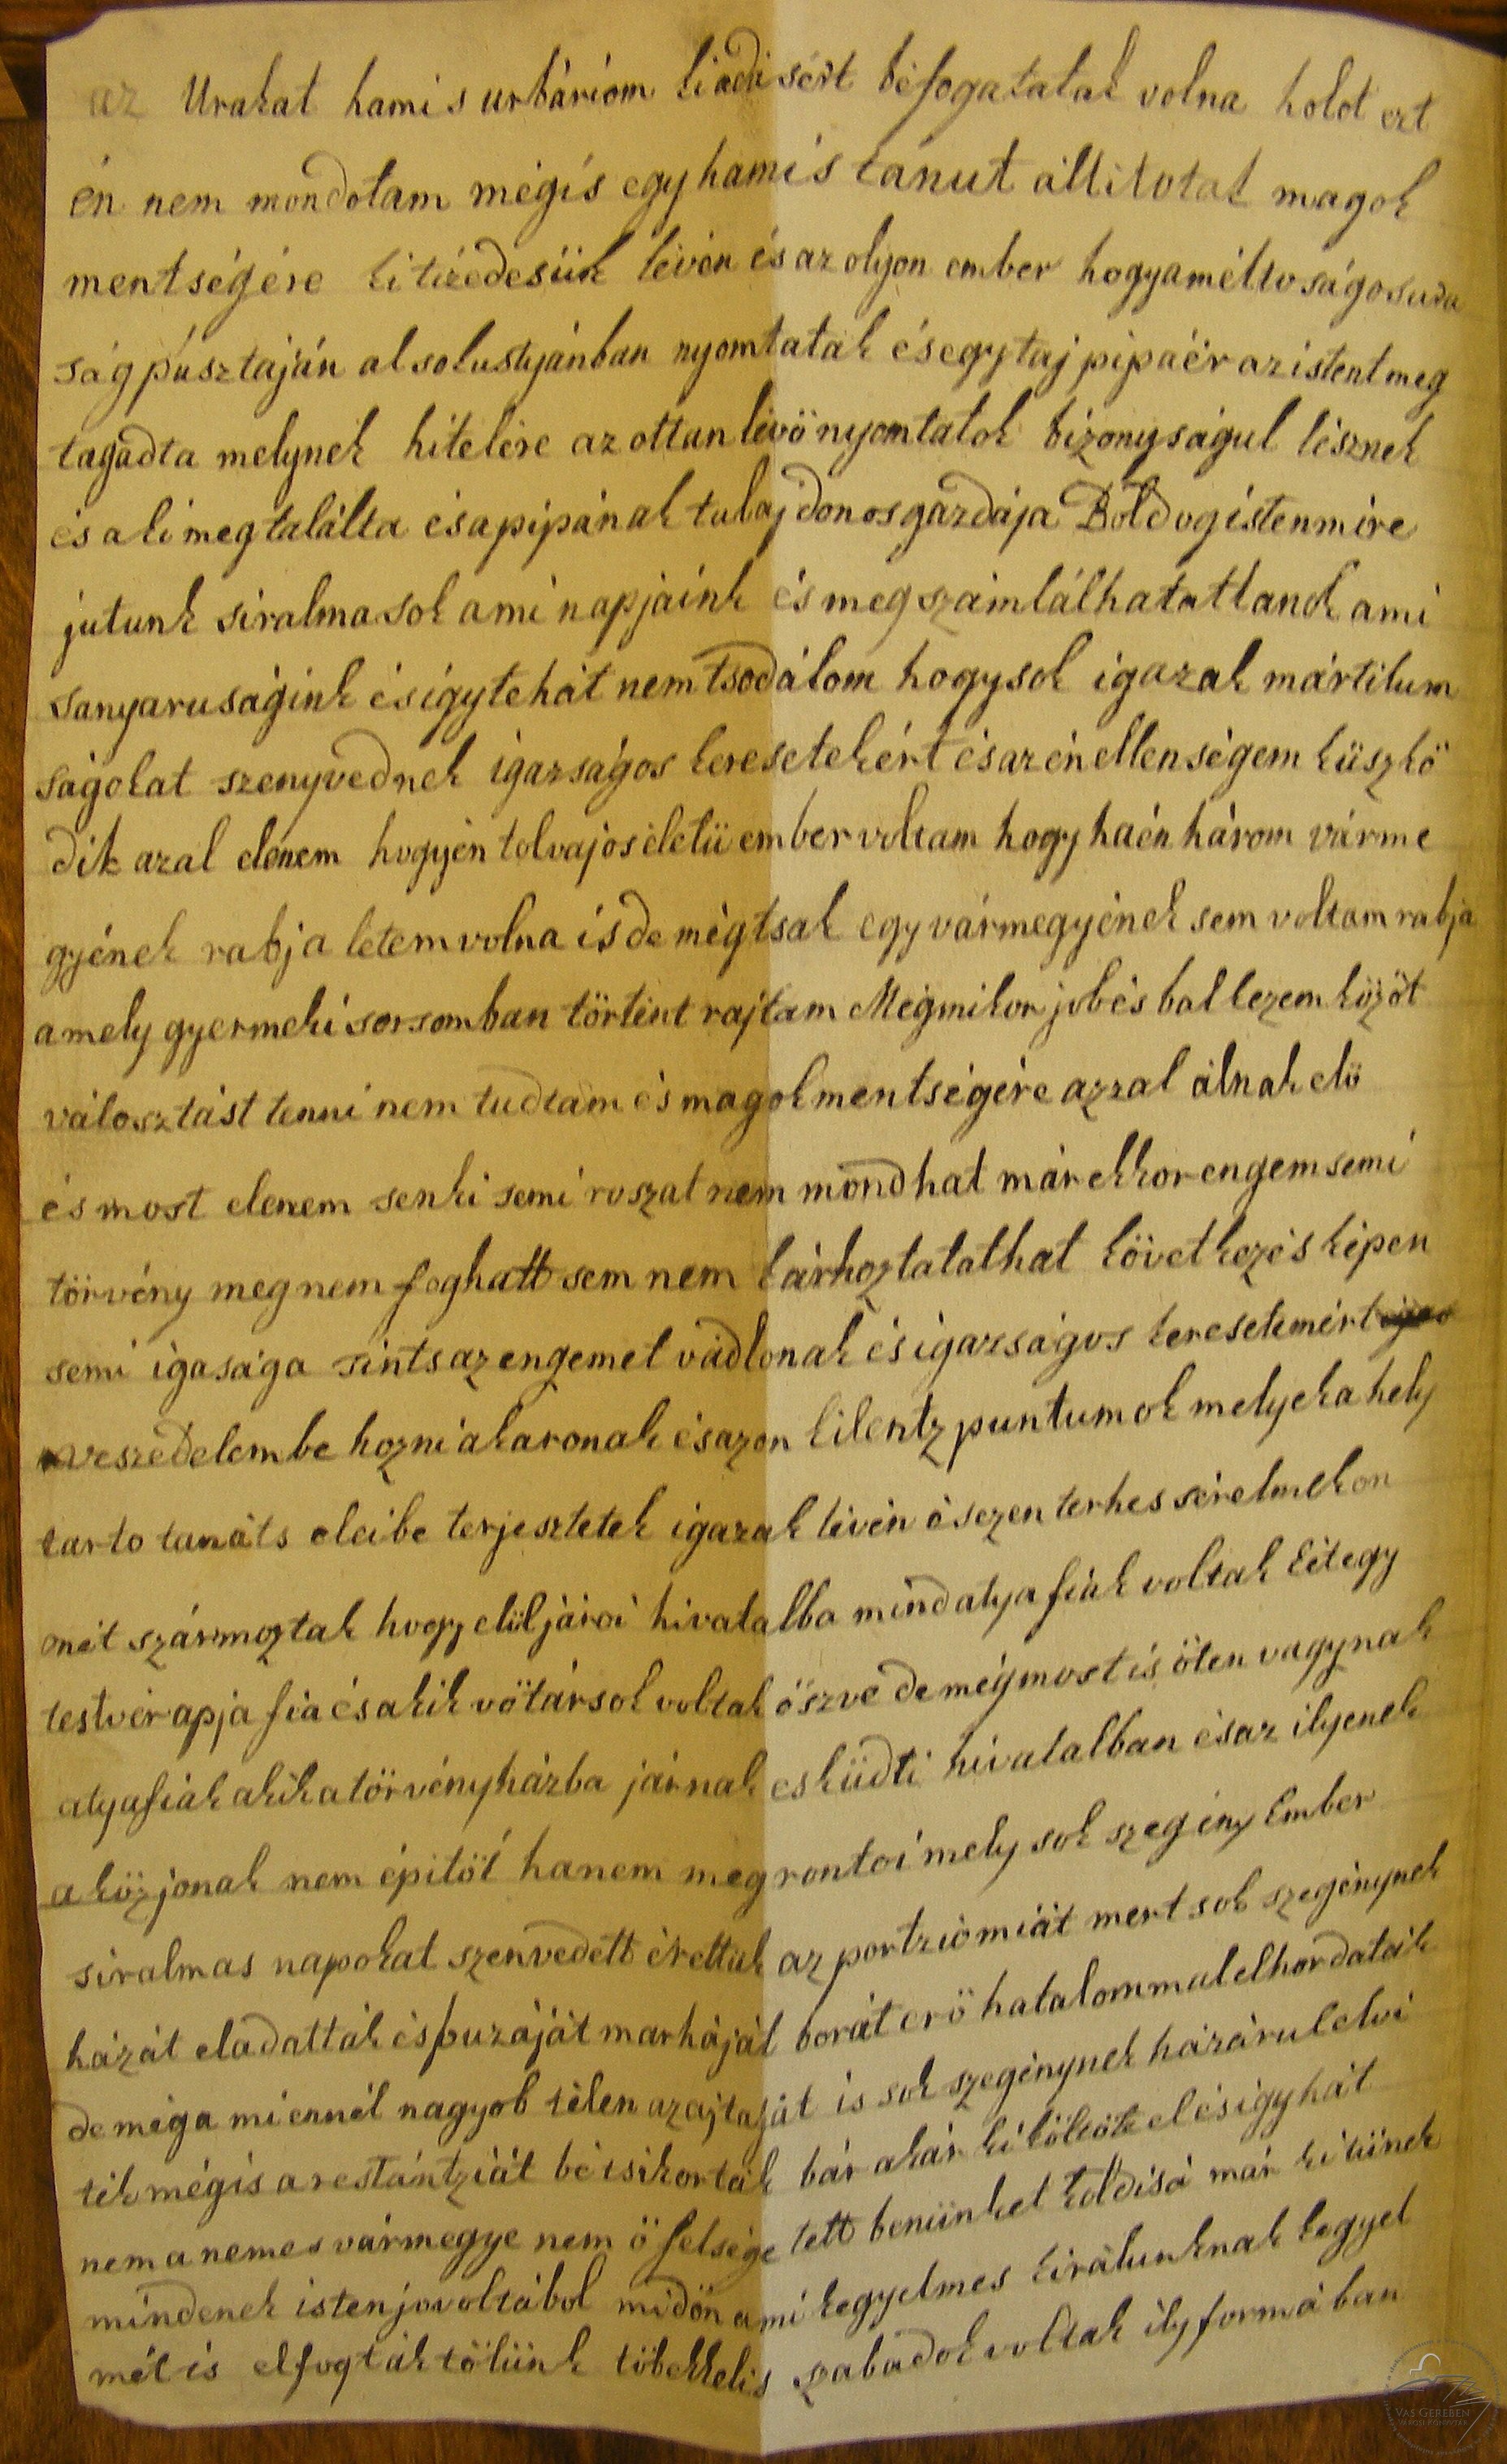 az Urakat hamis urbáriom kiadásért béfogatatak volna holot ezt
én nem mondotam mégis egy hamis tanut állitotak magok
mentségére ki tizedesük lévén és az olyon ember hogy a méltoságos ura
ság pusztáján alsokustyánban nyomtatak és egy taj pipáér az istent meg
tagadta melynek hitelére az ottan lévö nyomtatok bizonyságul lésznek
és aki meg találta és a pipának tulajdonos gazdája Boldog isten mire
jutunk siralmasok a mi napjaink és meg számlálhatatlanok a mi
sanyaruságink és igy tehát nem tsodálom hogy sok igazak mártilum
ságokat szenyvednek igazságos keresetekért és az én ellenségem küszkö
dik azal elenem hogy én tolvajos életü ember voltam hogy ha én három várme
gyének rabja letem volna is de még tsak egy vármegyének sem voltam rabja
amely gyermeki sorsomban történt rajtam Még mikor job és bal kezem között
válosztást tenni nem tudtam és magok mentségére azzal álnak elö
és most elenem senki semi roszat nem mondhat már ekkor engem semi
törvény meg nem foghatt sem nem kárhoztatathat következés képen
semi igasága sints az engemet vádlonak és igazságos keresetemért
veszedelembe hozni akaronak és azon kilentz puntumok melyek a hely
tarto tanáts eleibe terjesztetek igazak lévén és ezen terhes sérelmek on
nét szármoztak hogy elüljároi hivatalba mind atyafiak voltak két egy
testvér apja fia és akik vötársok voltak öszve de még most is öten vagynak
atyafiak akik a törvényházba járnak esküdti hivatalban és az ilyenek
a közjonak nem épitöi hanem meg rontoi mely sok szegény Ember
siralmas napokat szenvedett érettük az portzió miát mert sok szegénynek
házát eladatták és buzáját marháját borát erö hatalommal elhordaták
de még a mi ennél nagyob télen az ajtaját is sok szegénynek házárul elvi
ték mégis a restántziát bé tsikorták bár akár ki költötte el és igy hát
nem a nemes vármegye nem ö felsége tett benünket koldisá már ki tünek
mindenek isten jovoltábol midön a mi kegyelmes királunknak kegyel
mét is elfogták tölünk többekkel is szabadok voltak ily formában
VAS GEREBEN
VÁROSI KÖNYVTÁR